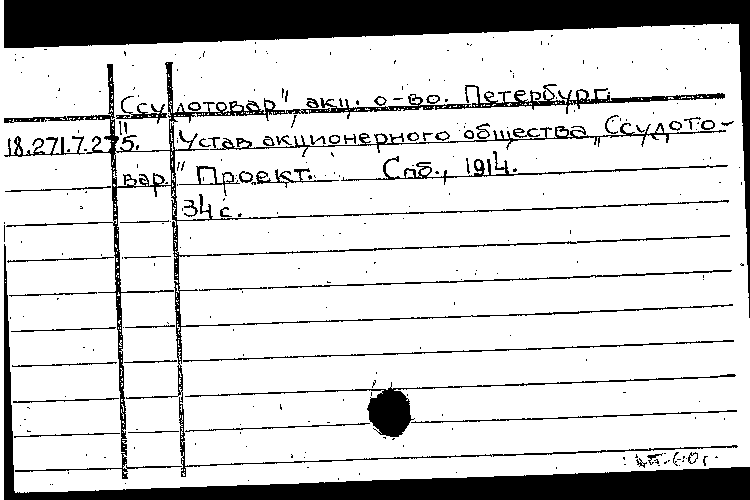 Ссудотовар", акц. о-во. Петербург.
18.271.7.275. Устав акционерного общества „Ссудото-
вар." Проект. Спб., 1914.
34 с.